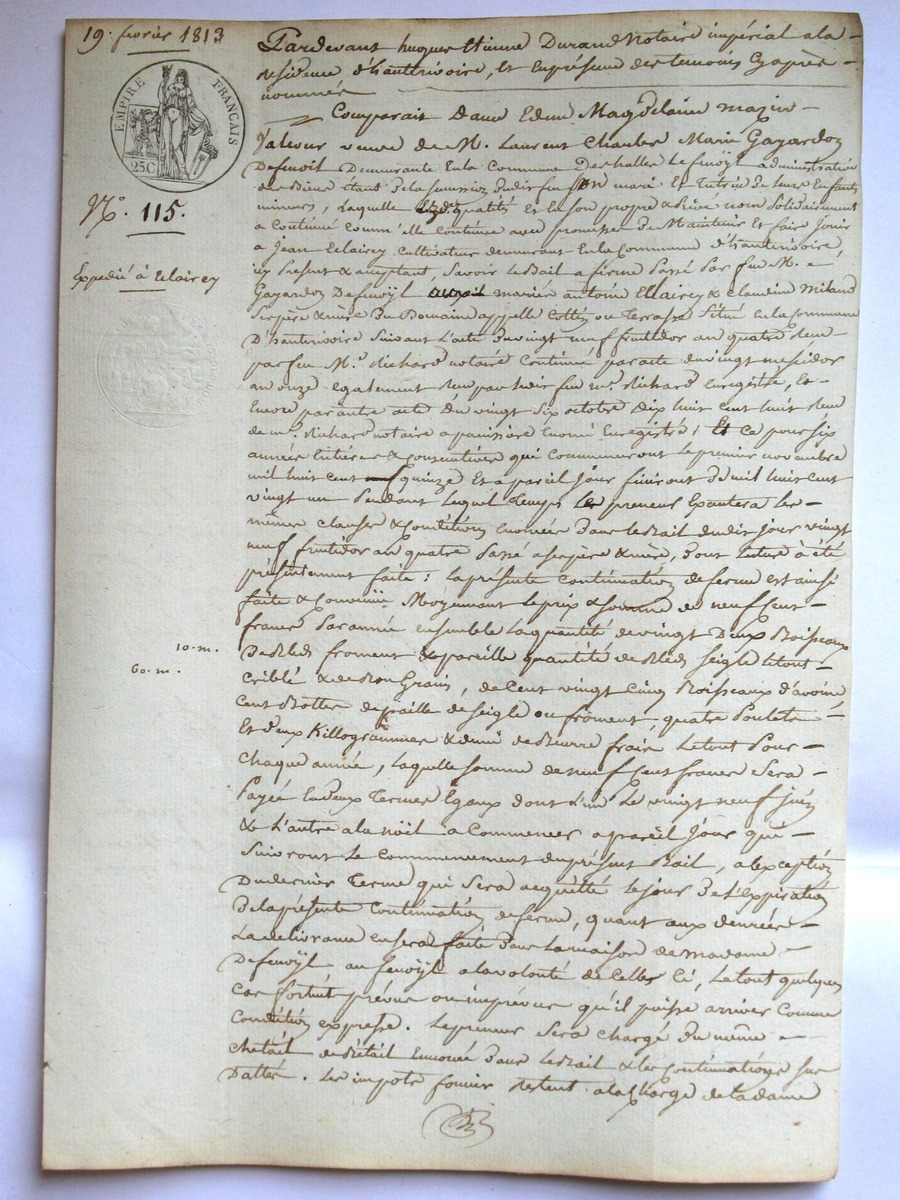 19. fevrier 1813
EMPIRE FRANÇAIS
25C
N.° 115.
Expedié à Eclairey
10. m.
60. m.
Pardevant hugues Etienne Durand Notaire impérial a la
residence d'hauterivoire, et En présence des temoins Cy après
nommés
Comparait Dame Edme Magdelaine mazin
Valeour veuve de M. Laurent Charles Marie Gayardon
Defenoil Demeurante En la Commune De halles Le fenoÿl administratrice
des Biens etant De la succession dudit feu Son mari Et Tutrice de leurs Enfants
mineurs, Laquelle Esdes qualités Et En Son propre & Privé nom Solidairement
a Continué comm'Elle Continue avec promesse De Maintenir Et faire Jouir
a Jean Eclairey Cultivateur demeurant En la Commune d'hauterivoire,
icy Present & acceptant, Savoir le Bail a ferme Passé Par feu M.
Gayardon Defenoÿl mariés antoine Ellairey & claudine Miland
Ses père & mère Du Domaine appellé Cottin ou Terrasse Situé En la Commune
D'hauterivoire Suivant L'acte Du vingt neuf fructidor an quatre Reçu
par feu M.e Richard notaire Continué par acte du vingt messidor
an onze egalement Reçu par ledit feu m.e Richard Enregistré, Et
Encore par autre acte du vingt Six octobre Dix huit Cent huit Reçu
de m.e Richard notaire a panissiere Enregistré; Et Ce pour six
années Entieres & Consecutives qui Commenceront le premier novembre
mil huit Cent quinze Et a pareil Jour finiront De mil huit Cent
vingt un Pendant Lequel Temps Le preneur Exécutera les
mêmes clauses & Conditions Enoncées Dans le Bail dudit Jour vingt
neuf fructidor an quatre Passé a Ses père & mère, Dont lecture à été
présentement faite: La présente Continuation de ferme est ainsi
faite & Convenüe Moyennant le prix & Somme de neuf Cent
francs Par année ensemble La quantité de vingt Deux Boisseaux
De Bled froment & pareille quantité de Bled Seigle le tout
Criblé & de Bon Grain, de Cent vingt Cinq Boisseaux d'avoine
Cent Bottes de paille de Seigle ou froment, quatre Poulets
Et deux Killogrammes & demi de Beurre frais Le tout Pour
Chaque année, Laquelle Somme de neuf Cent francs Sera
Payée En deux Termes Egaux dont l'un Le vingt neuf juin
& L'autre a la nöel a Commencer a pareil Jour qui
Suivront Le Commencement du présent Bail, a l'exception
Du dernier Terme qui Sera acquitté le jour De L'Expiration
De la présente Continuation de ferme, quant aux denrées
La delivrance en sera faite Dans La maison de Madame
Defenoÿl au fenoÿl a la volonté de Celles Ci, Le tout quelques
Cas fortuit prévus ou imprévus qu'il puisse arriver Comme
Condition expresse. Le preneur Sera Chargé Du même
Cheteil de Betail Enoncée Dans le Bail & les Continuations Sus
Dattés. Les impots fonciers Restent a la Charge de la dame